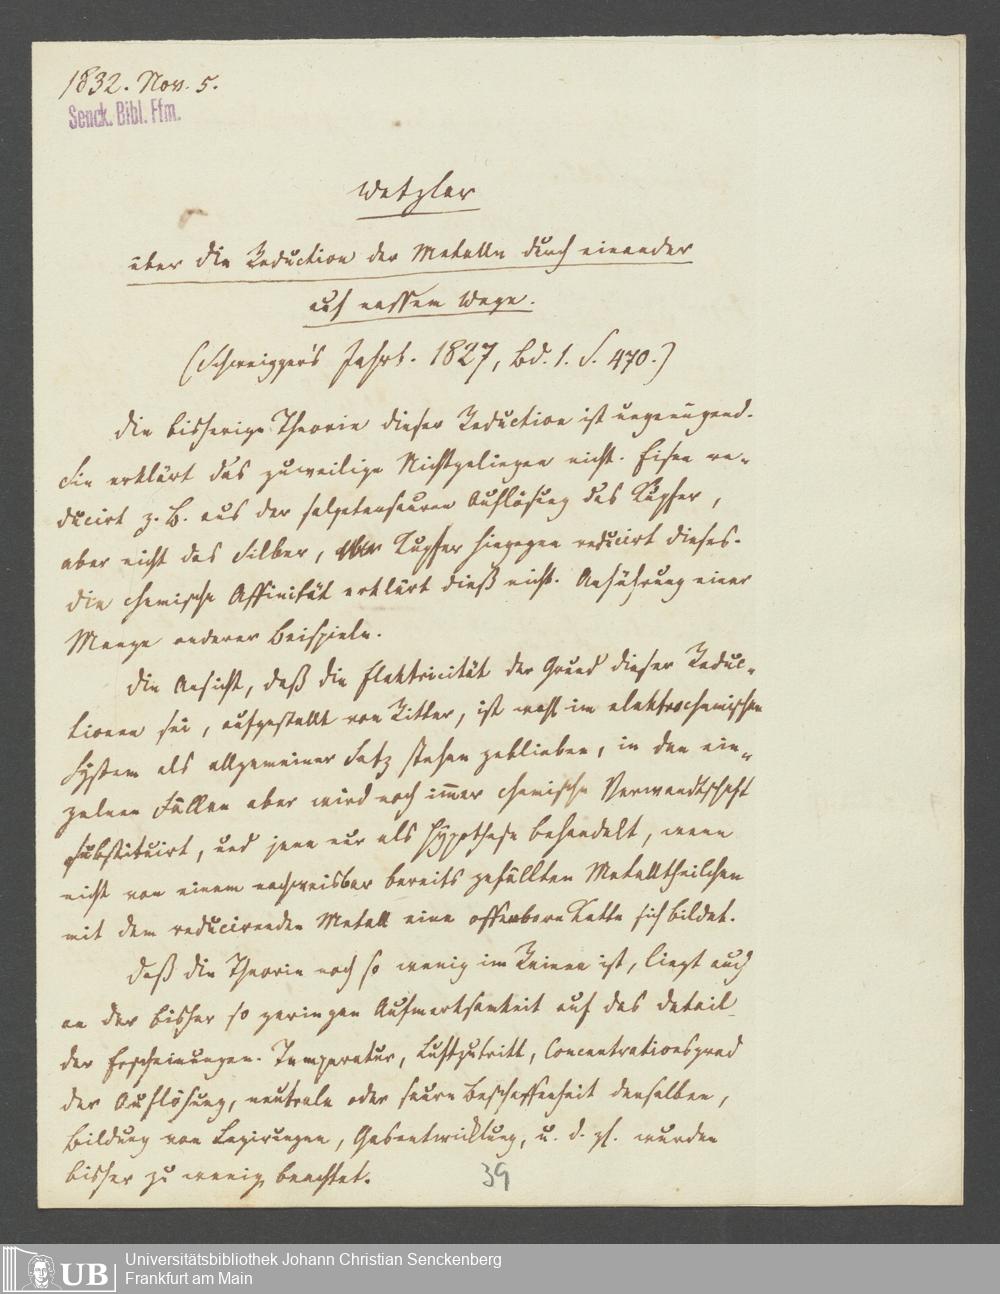 1832. Nov. 5.
Senck. Bibl. Ffm.
Wetzlar
über die Reduction der Metalle durch einander
auf nassem Wege.
(Schweigger's Jahrb. 1827, Bd. 1. S. 470.)
Die bisherige Theorie dieser Reduction ist ungenügend.
Sie erklärt das zuweilige Nichtgelingen nicht. Eisen re-
ducirt z. B. aus der salpetersauren Auflösung das Kupfer,
aber nicht das Silber, Kupfer hingegen reducirt dieses.
Die chemische Affinität erklärt dieß nicht. Anführung einer
Menge anderer Beispiele.
Die Ansicht, daß die Elektricität der Grund dieser Reduc-
tionen sei, aufgestellt von Ritter, ist wohl im elektrochemischen
System als allgemeiner Satz stehen geblieben, in den ein-
zelnen Fällen aber wird noch immer chemische Verwandtschaft
substituirt, und jene nur als Hypothese behandelt, wenn
nicht von einem nachweisbar bereits gefällten Metalltheilchen
mit dem reducirenden Metall eine offenbare Kette sich bildet.
Daß die Theorie noch so wenig im Reinen ist, liegt auch
an der bisher so geringen Aufmerksamkeit auf das Detail
der Erscheinungen. Temperatur, Luftzutritt, Concentrationsgrad
der Auflösung, neutrale oder saure Beschaffenheit derselben,
Bildung von Legirungen, Gasentwicklung, u. d. gl. wurden
bisher zu wenig beachtet.
39
UB
Universitätsbibliothek Johann Christian Senckenberg
Frankfurt am Main